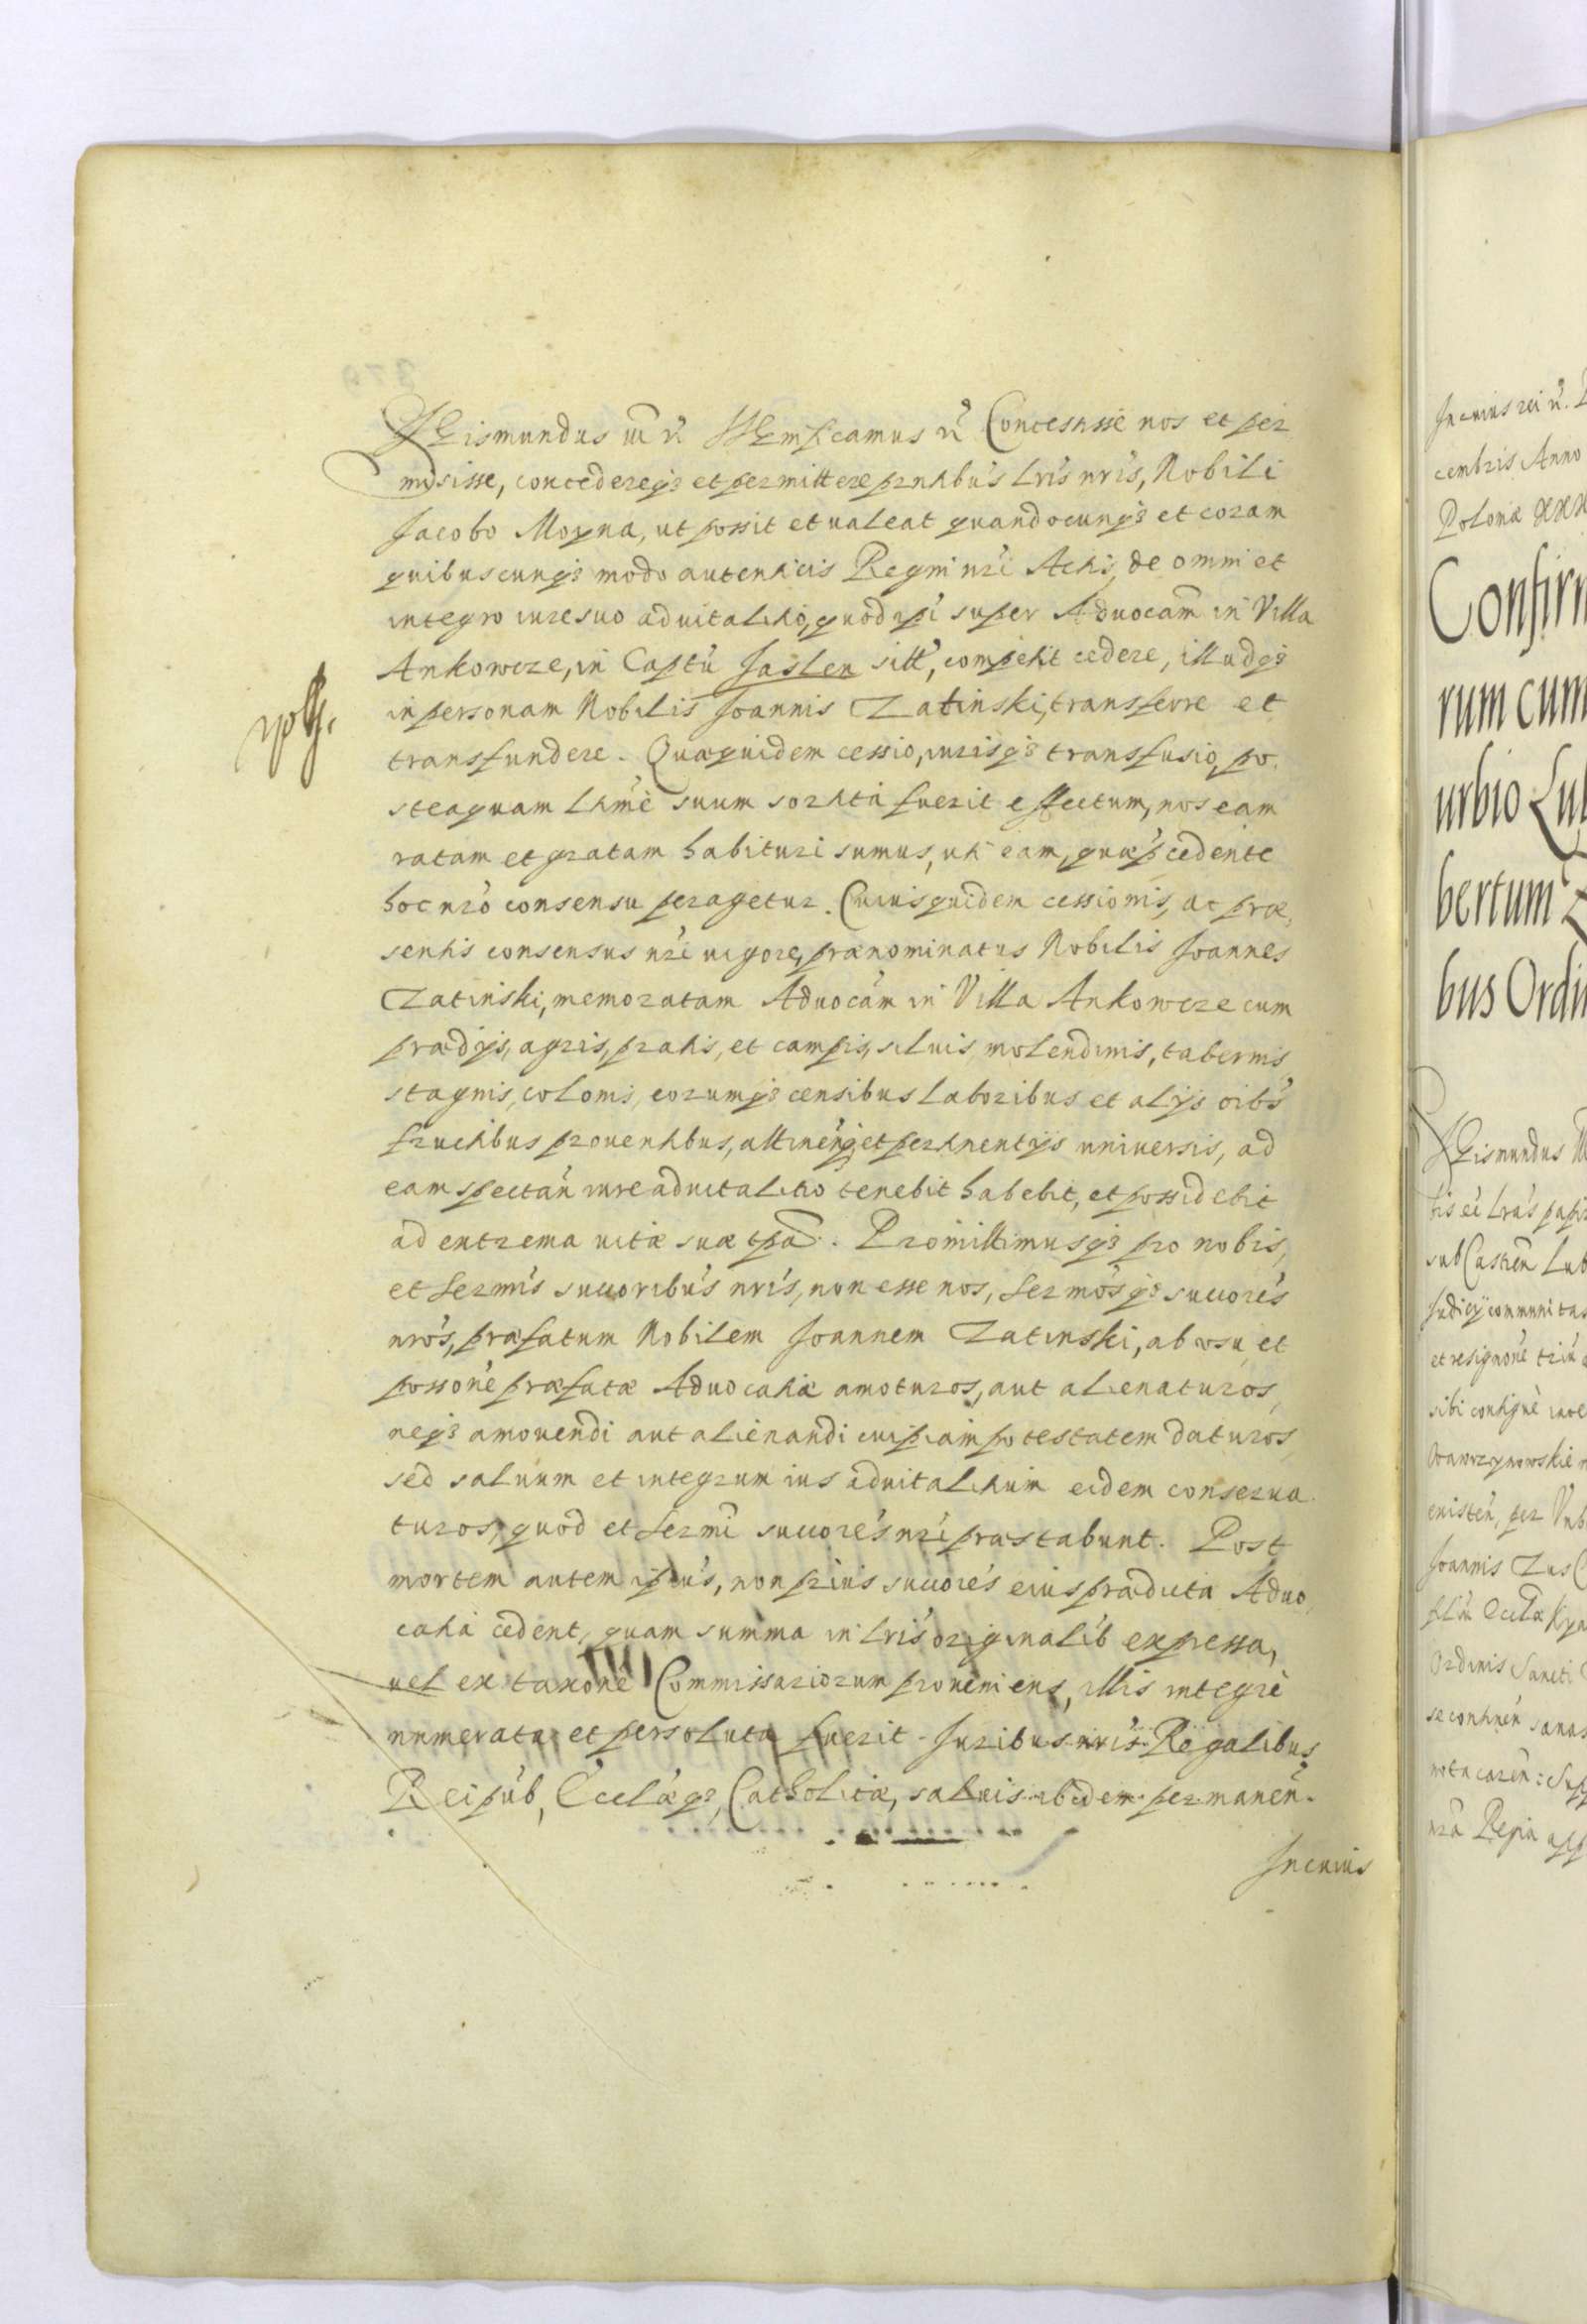 Sigismundus III etc. Significamus etc. Concessisse nos et per
misisse, concedereq3 et permittere pntibus lris nris, Nobili
Jacobo Moyna, ut possit et ualeat quandocunq3 et coram
quibuscunq3 modo autenticis Regni nri Actis, de omni et
integro iure suo aduitalitio, quod ipi super Aduocam in Villa
Ankowcze, in Captu Jaslen sitt, competit cedere, illudq3
in personam Nobilis Joannis Zatinski, transferre et
transfundere. Quaequidem cessio, iurisq3 transfusio, po
steaquam ltime suum sortita fuerit effectum, nos eam
ratam et gratam habituri sumus, uti eam, quae pcedente
hoc nro consensu peragetur. Cuiusquidem cessionis, ac prae
sentis consensus nri uigore, praenominatus Nobilis Joannes
Zatinski, memoratam Aduocam in Villa Ankowcze cum
praedijs, agris, pratis, et campis, siluis, molendinis, tabernis
stagnis, colonis, eorumq3 censibus laboribus et alijs oibs
fructibus prouentibus, attinen, et pertinentijs uniuersis, ad
eam spectan iure aduitalitio tenebit habebit, et possidebit
ad extrema uitae suae tpa. Promittimusq3 pro nobis,
et Sermis succoribus nris, non esse nos, Sermosq3 succores
nros, praefatum Nobilem Joannem Zatinski, ab usu et
possone praefatae Aduocatiae amoturos, aut alienaturos,
neq3 amouendi aut alienandi cuipiam potestatem daturos,
sed saluum et integrum ius aduitalitium eidem conserua
turos, quod et Sermi succores nri praestabunt. Post
mortem autem ipius, non prius succores eius praedicta Aduo
catia cedent, quam summa in lris originalib expressa,
uel ex taxone Commissariorum proueniens, illis integre
numerata et persoluta fuerit. Juribus nris Regalibus
Reipub, Ecclaeq3 Catholicae, saluis ibidem permanen.
In cuius
In cuius rei
cembris Anno
Poloniae XXX
Confirm
rum cum
urbio Lub
bertum
bus Ordi
Sigismundus
sub Castren Lub
Judicij communitas
et resignone
sibi
existen, per
Joannis
Ordinis Sancti
se continen sanas
nra Regia